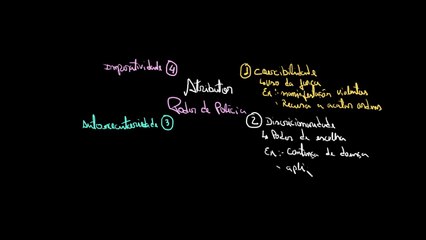 Imperatividade 4
Atributos
Poder de Polícia
Autoexecutoriedade 3
1 Coercibilidade
↳ uso da força
Ex:- manifestação violentas
- Recusa a acatar ordens
2 Discricionariedade
↳ Poder de escolha
Ex:- doença
- apli